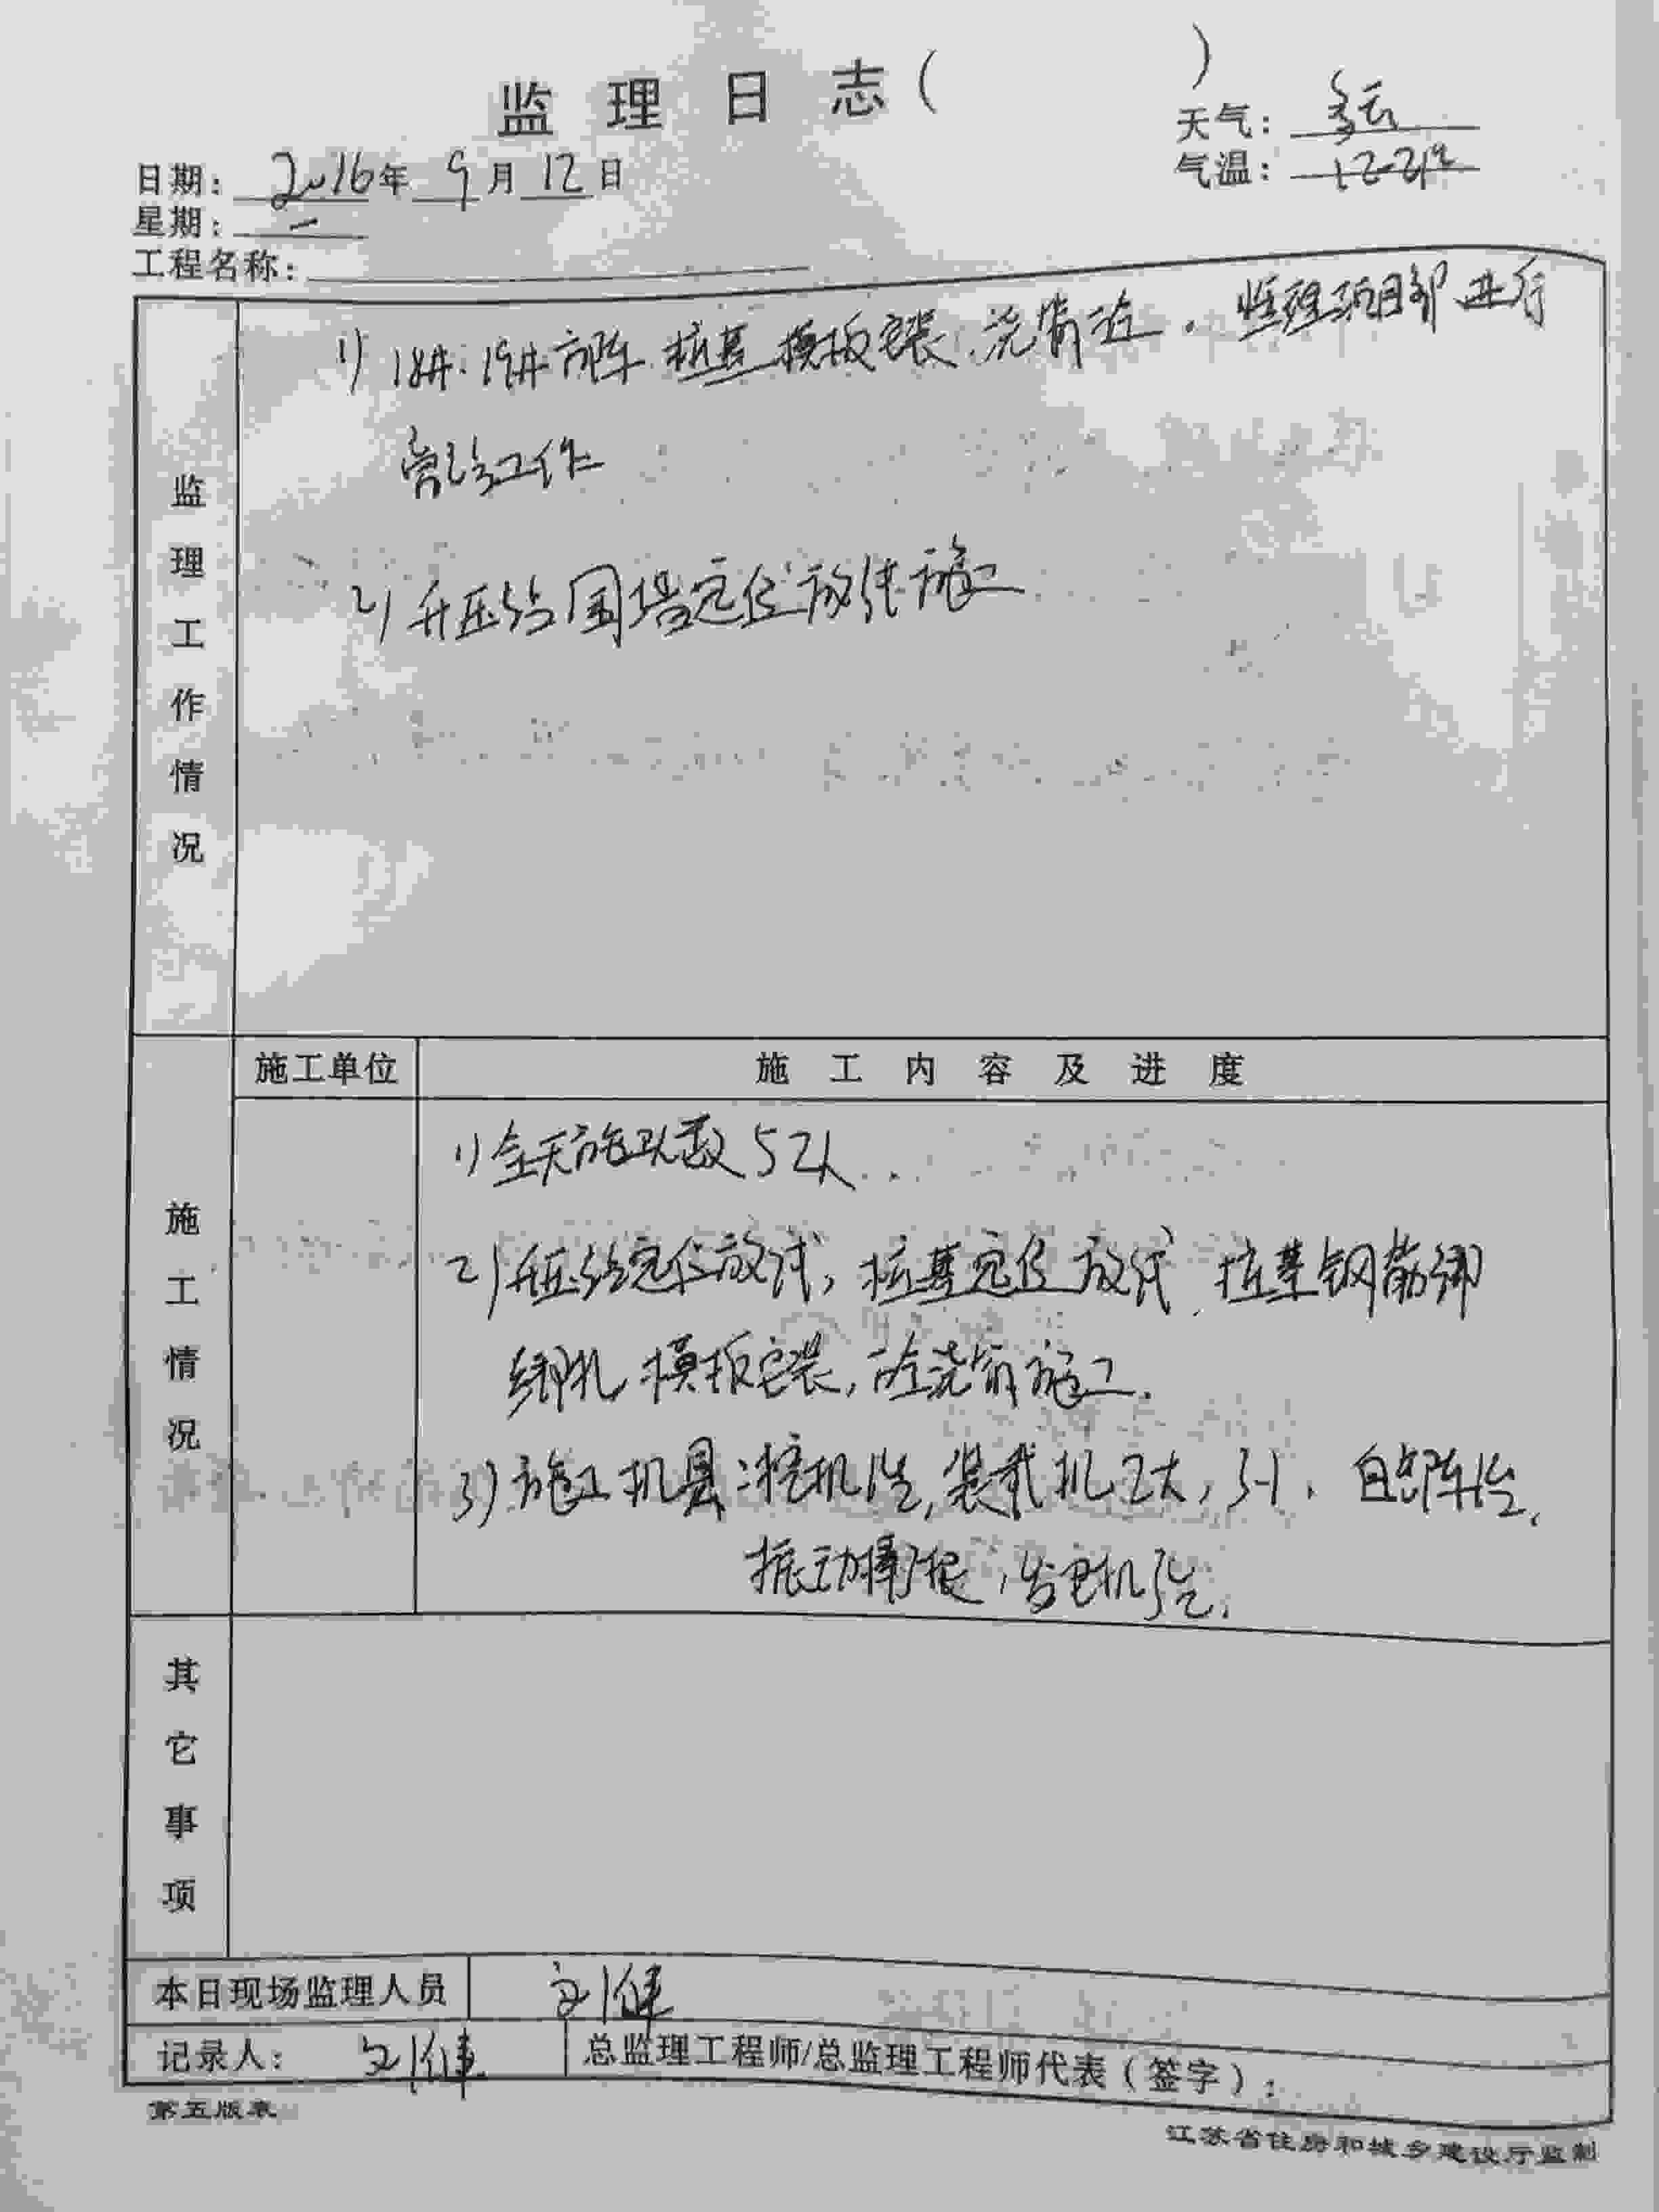 监理日志( )
天气: 多云
日期: 2016年 9月 12日
气温: 12-21℃
星期: 一
工程名称:
监理工作情况
1) 18#、19#方阵桩基模板安装、浇筑砼,监理项目部进行
旁站工作
2) 升压站围墙定位放线施工
施工单位
施工内容及进度
施工情况
1) 全天施工人数52人
2) 升压站定位放线,桩基定位放线、桩基钢筋绑
绑扎 模板安装,砼浇筑施工.
3) 施工机具:挖机1台,装载机2大, 自卸车1台,
振动棒 根,发电机3台.
其它事项
本日现场监理人员 刘健
记录人: 刘健
总监理工程师/总监理工程师代表(签字):
第五版表
江苏省住房和城乡建设厅监制